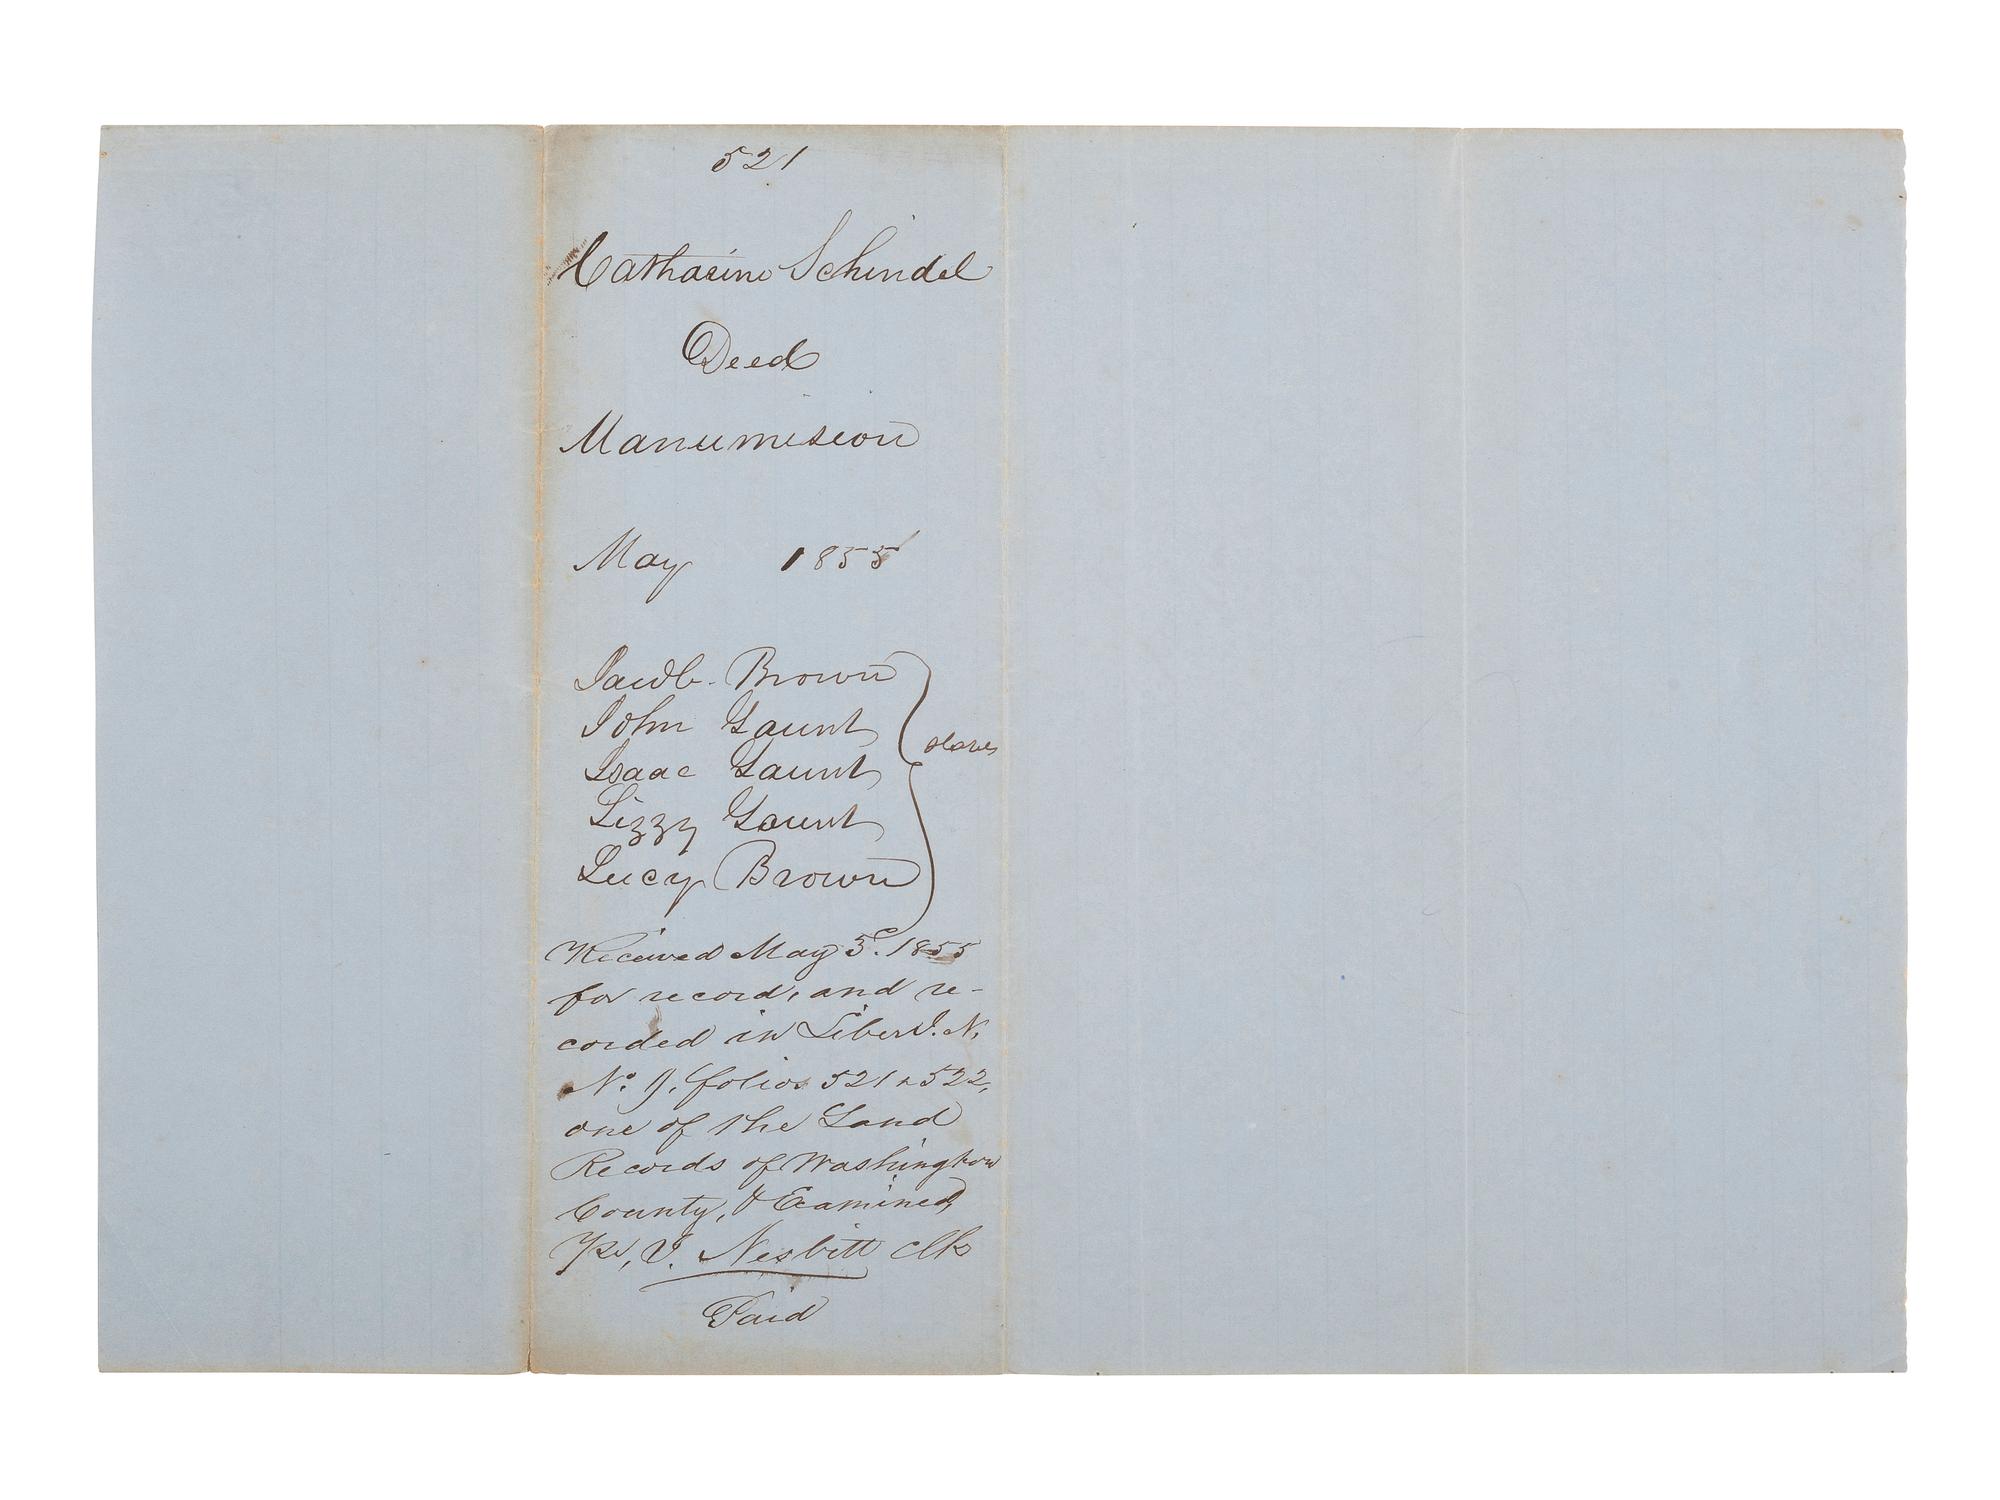 521
Catharine Schindel
Deed
Manumision
May 1855
Jacob Brown
John Gaunt
Isaac Gaunt
slaves
Lizzy Gaunt
Lucy Brown
Received May 5. 1855
for record, and re-
corded in Liber I. N.
No. 9, folios 521 & 522,
one of the Land
Records of Washington
County, & Examined,
Pr, I. Nesbitt clk
Paid